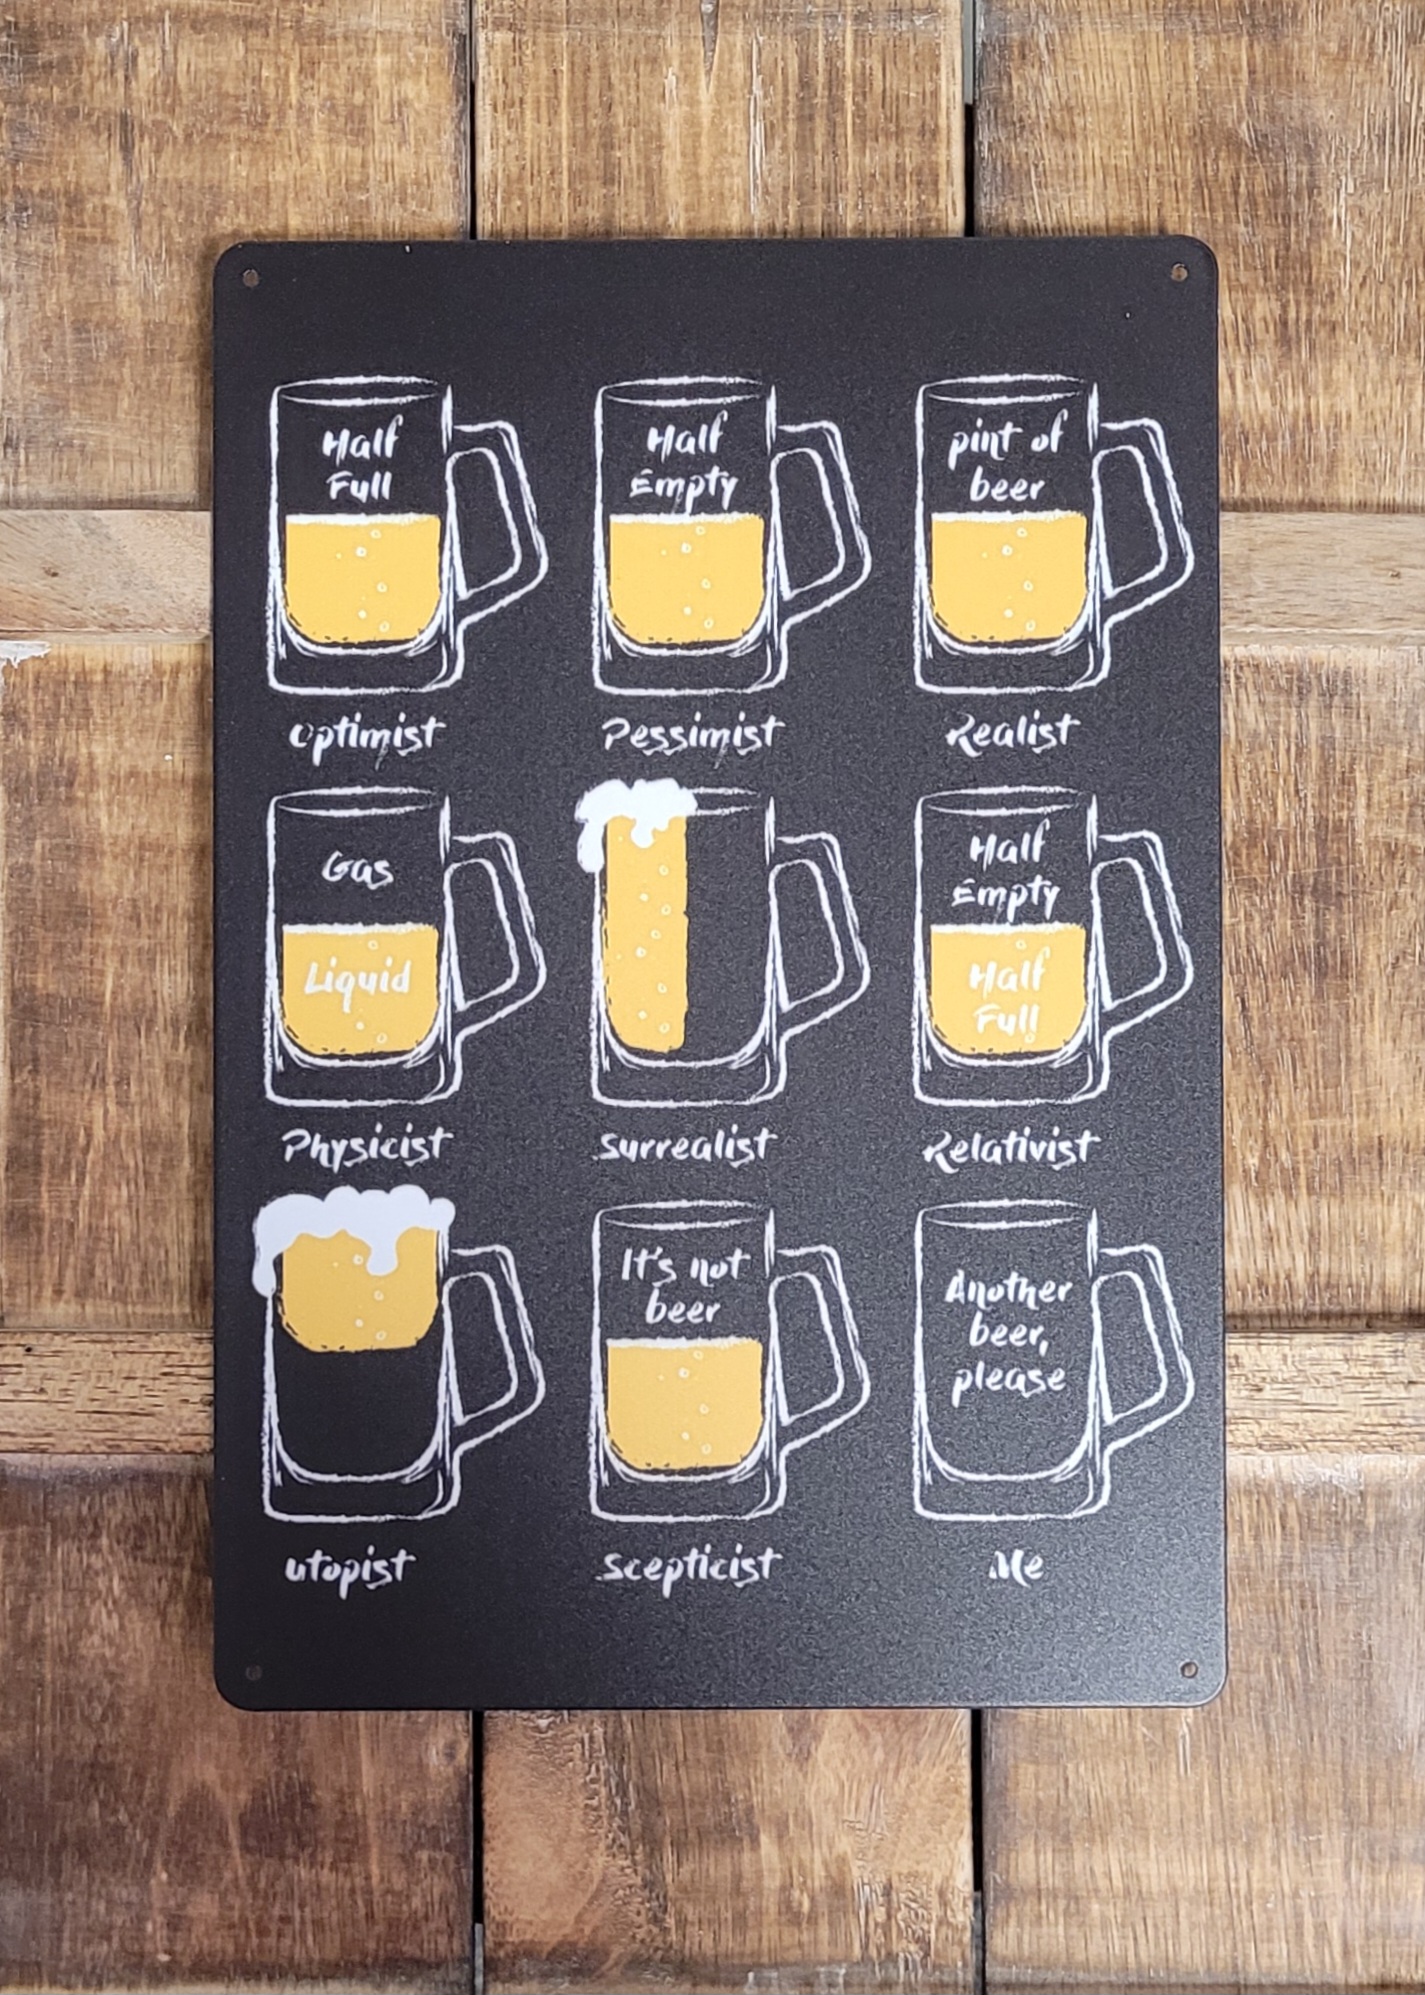 Half
Full
Optimist
Half
Empty
Pessimist
pint of
beer
Realist
Gas
Liquid
Physicist
Surrealist
Half
Empty
Half
Full
Relativist
utopist
It's not
beer
Scepticist
Another
beer,
please
Me